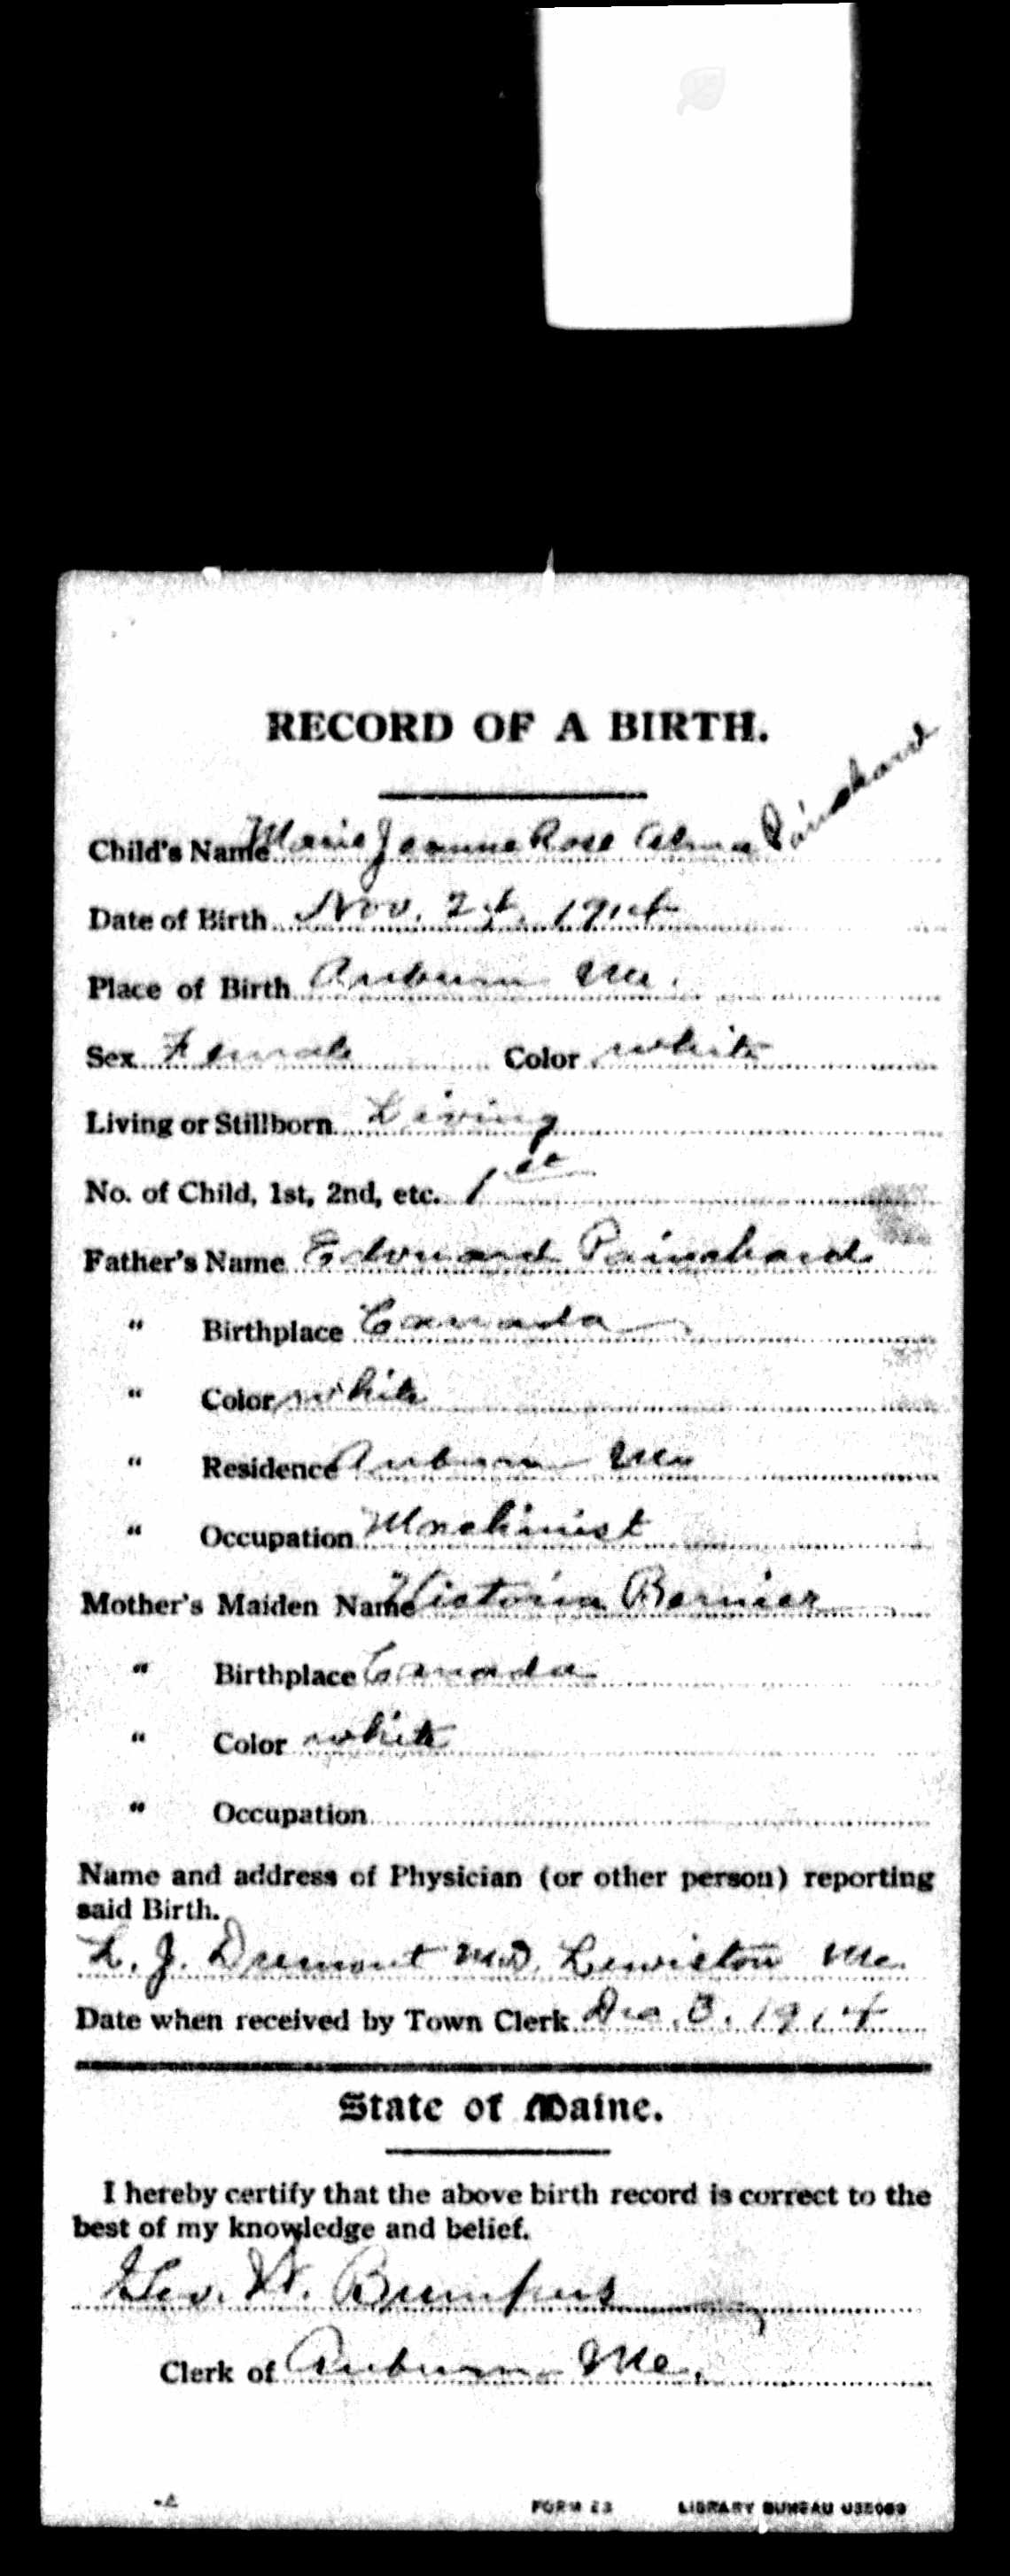 RECORD OF A BIRTH.
Child's Name Marie Jeanne Rose Alma Painchard
Date of Birth Nov. 24, 1914
Place of Birth Auburn Me.
Sex Female Color white
Living or Stillborn Living
No. of Child, 1st, 2nd, etc. 1st
Father's Name Edouard Painchard
" Birthplace Canada
" Color white
" Residence Auburn Me
" Occupation Machinist
Mother's Maiden Name Victoria Bernier
" Birthplace Canada
" Color white
" Occupation
Name and address of Physician (or other person) reporting
said Birth.
L. J. Dumont M.D. Lewiston Me.
Date when received by Town Clerk Dec. 3. 1914
State of Maine.
I hereby certify that the above birth record is correct to the
best of my knowledge and belief.
Geo. W. Bumpus
Clerk of Auburn Me.
FORM 23 LIBRARY BUREAU